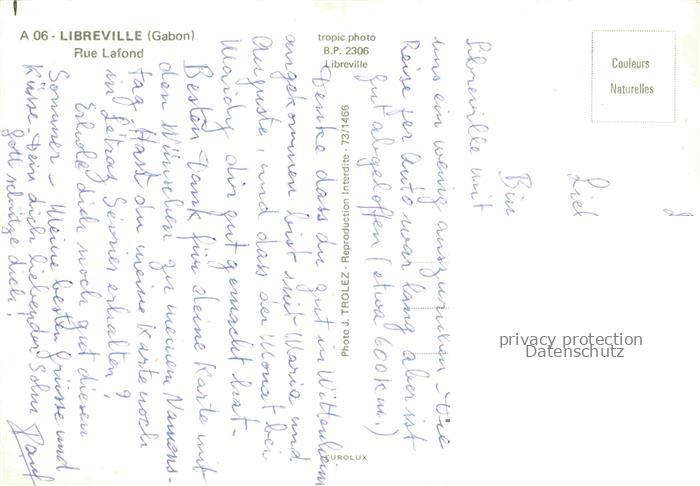 A 06 - LIBREVILLE (Gabon)
Rue Lafond
tropic photo
B.P. 2306
Libreville
Couleurs
Naturelles
Photo J. TROLEZ - Reproduction Interdite - 73/1466
EUROLUX
privacy protection
Datenschutz
Lieb
Bin
Libreville mit
uns ein wenig auszuruhen - Die
Reise per Auto war lang aber ist
gut abgeloffen (etwa 600 km.)
Denke dass du gut in Wittenheim
angekommen bist mit Maria und
Auguste, und dass der Monat bei
Maidy dir gut gemacht hat -
Besten Dank für deine Karte mit
den Wünschen zu meinem Namens-
tag. Hast du meine Karte noch
in Sévrier erhalten?
Erhole dich noch gut diesen
Sommer - Meine besten Grüsse und
Küsse - Dein dich liebender Sohn
Gott schütze dich!
Paul